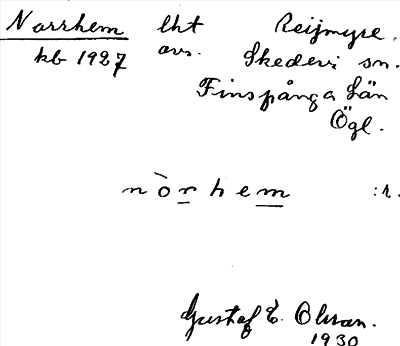 Norrhem lht Reijmyre.
kb 1927 avs. Skedevi sn.
Finspånga Län
Ögl.
nòrhem :r.
Gustaf E. Olsson.
1930